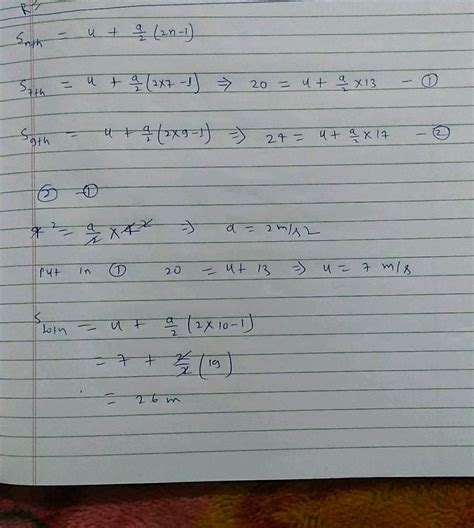 R:
S_nth = u + a/2 (2n-1)
S_7th = u + a/2 (2×7-1) ⇒ 20 = u + a/2 ×13 - ①
S_9th = u + a/2 (2×9-1) ⇒ 24 = u + a/2 ×17 - ②
② - ①
4 2 = a/2 × 4 2 ⇒ a = 2m/s2
Put in ① 20 = u+ 13 ⇒ u = 7 m/s
S_10th = u + a/2 (2×10-1)
= 7 + 2/2 (19)
= 26 m